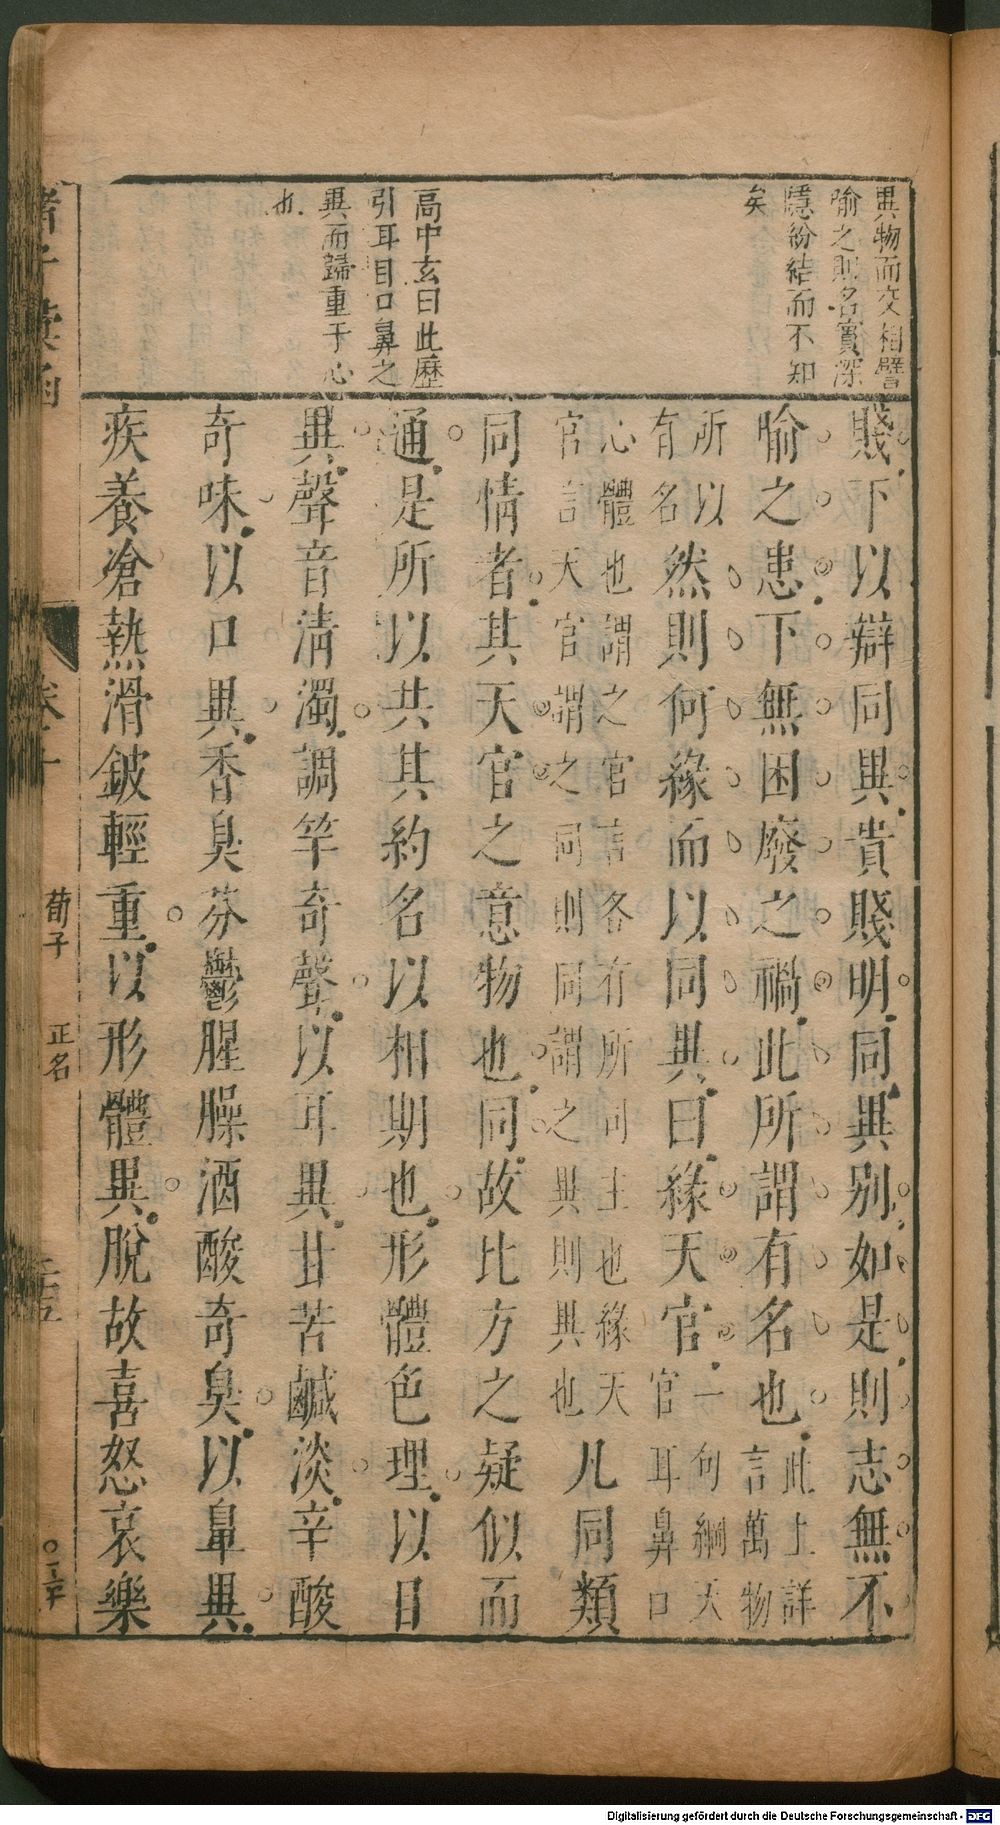 異物而交相譬
喻之則名實深
隱紛結而不知
矣
高中玄曰此歷
引耳目口鼻之
異而歸重于心
也
賤下以辯同異貴賤明同異別如是則志無不
喻之患下無困廢之禍此所謂有名也此上詳言萬物
所以有名然則何緣而以同異曰緣天官一句綱天官耳鼻口
心體也謂之官言各有所司主也緣天官言天官謂之同則同謂之異則異也凡同類
同情者其天官之意物也同故比方之疑似而
通是所以共其約名以相期也形體色理以目
異聲音清濁調竽奇聲以耳異甘苦鹹淡辛酸
奇味以口異香臭芬鬱腥臊酒酸奇臭以鼻異
疾養凔熱滑鈹輕重以形體異脫故喜怒哀樂
諸子彙函
荀子
正名
Digitalisierung gefördert durch die Deutsche Forschungsgemeinschaft - DFG